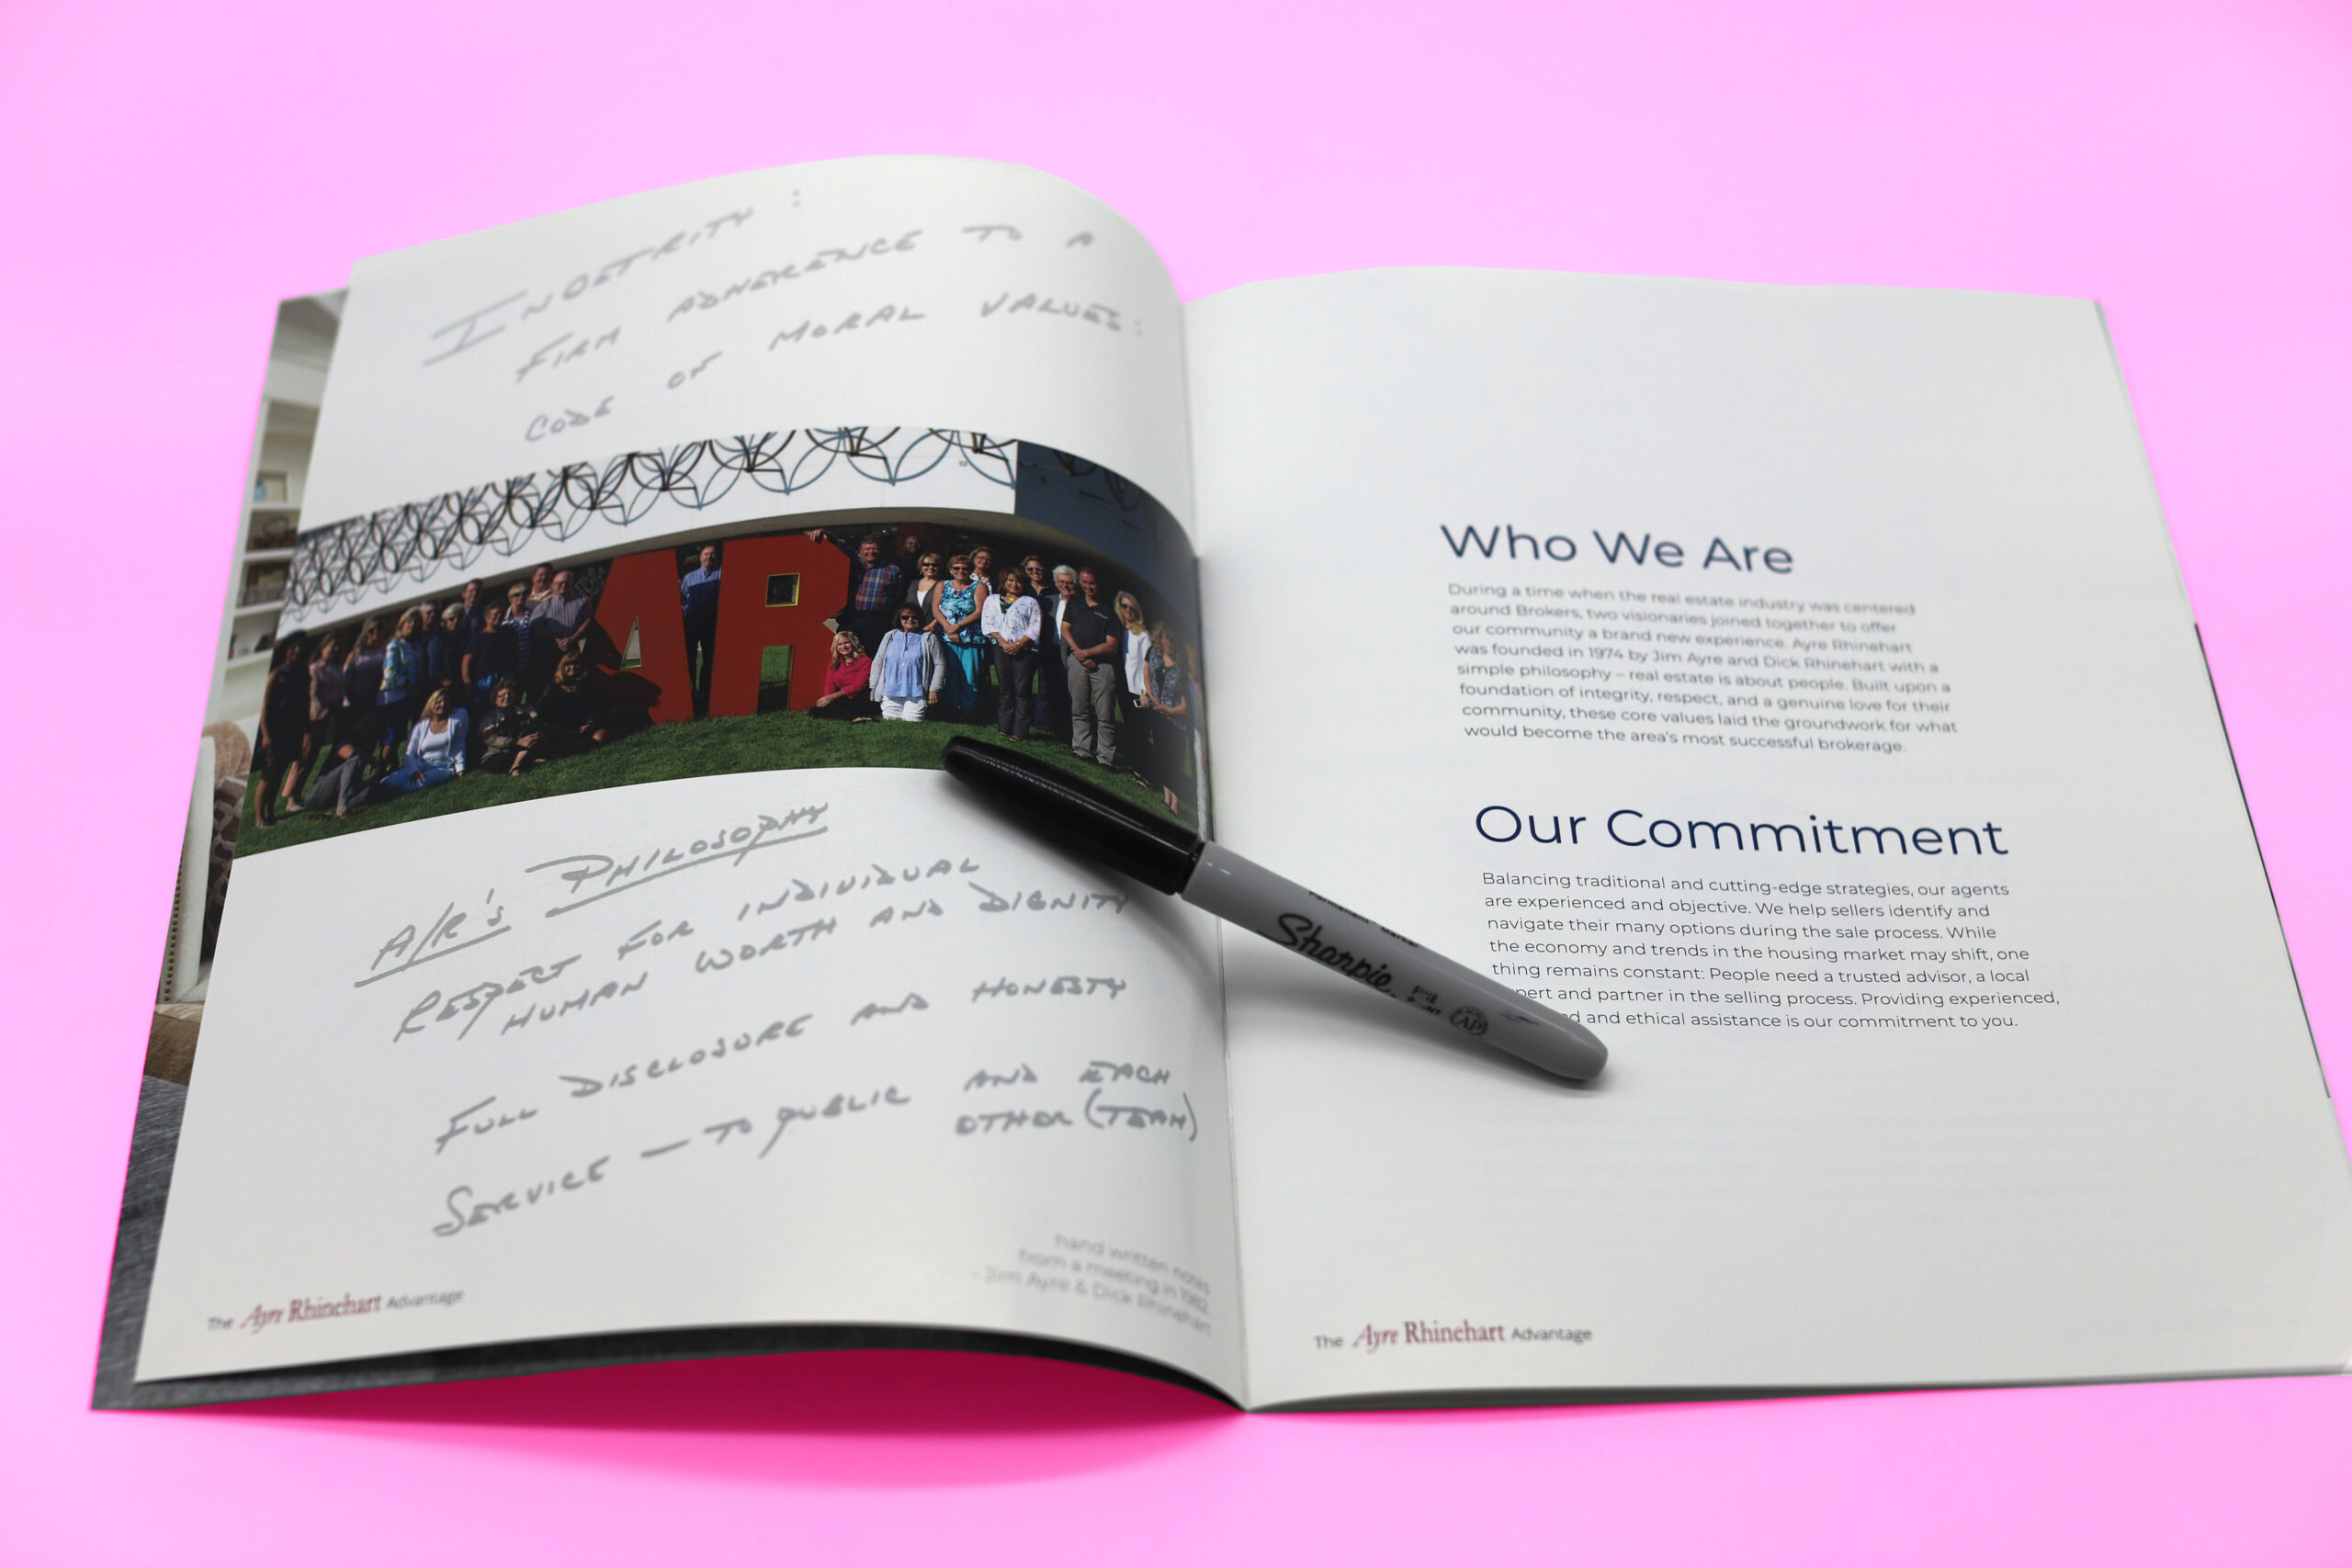 INGETRITY :
FIRM ADHERENCE TO A
CODE OF MORAL VALUES :
AR
A/R'S PHILOSOPHY
RESPECT FOR INDIVIDUAL
HUMAN WORTH AND DIGNITY
FULL DISCLOSURE AND HONESTY
SERVICE — TO PUBLIC AND EACH
OTHER (TEAM)
hand written notes
from a meeting in 1982
- Jim Ayre & Dick Rhinehart
The Ayre Rhinehart Advantage
Permanent Marker
Sharpie
FINE
POINT
AP
Who We Are
During a time when the real estate industry was centered
around Brokers, two visionaries joined together to offer
our community a brand new experience. Ayre Rhinehart
was founded in 1974 by Jim Ayre and Dick Rhinehart with a
simple philosophy – real estate is about people. Built upon a
foundation of integrity, respect, and a genuine love for their
community, these core values laid the groundwork for what
would become the area's most successful brokerage.
Our Commitment
Balancing traditional and cutting-edge strategies, our agents
are experienced and objective. We help sellers identify and
navigate their many options during the sale process. While
the economy and trends in the housing market may shift, one
thing remains constant: People need a trusted advisor, a local
pert and partner in the selling process. Providing experienced,
d and ethical assistance is our commitment to you.
The Ayre Rhinehart Advantage